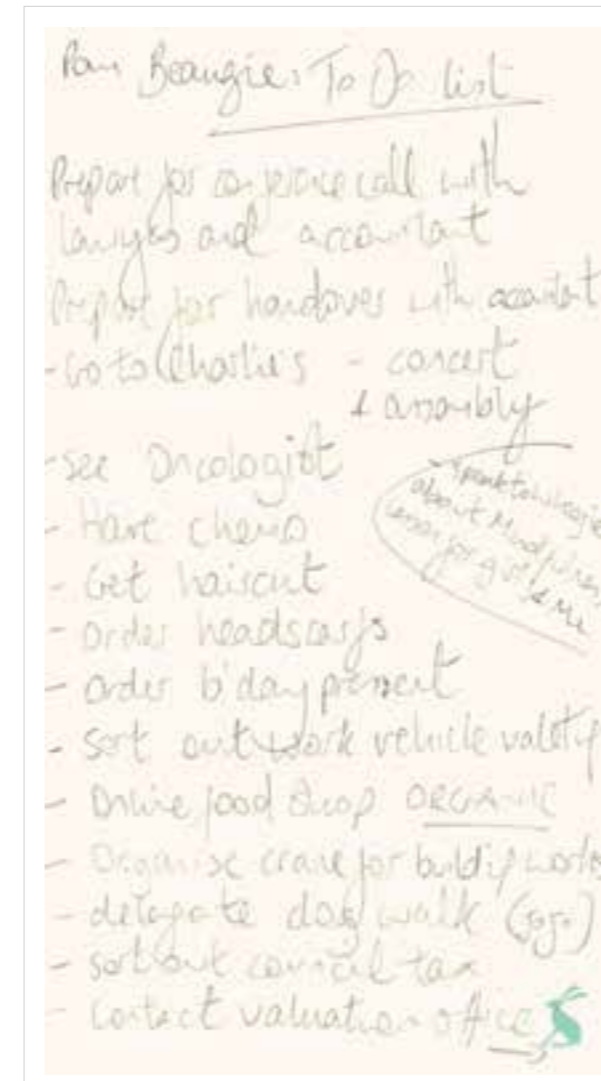 Pam Beaugié: To Do list
Prepare for conference call with
lawyers and accountant
Prepare for handover with accountant
- Go to Charlie's - concert
& assembly
- see Oncologist
- Have chemo
- Get haircut
- Order headscarfs
- order b'day present
- sort out work vehicle
- Online food shop ORGANIC
- Organise crane for works
- delegate dog walk
- sort out council tax
- Contact valuation office
about Mindfulness
& me